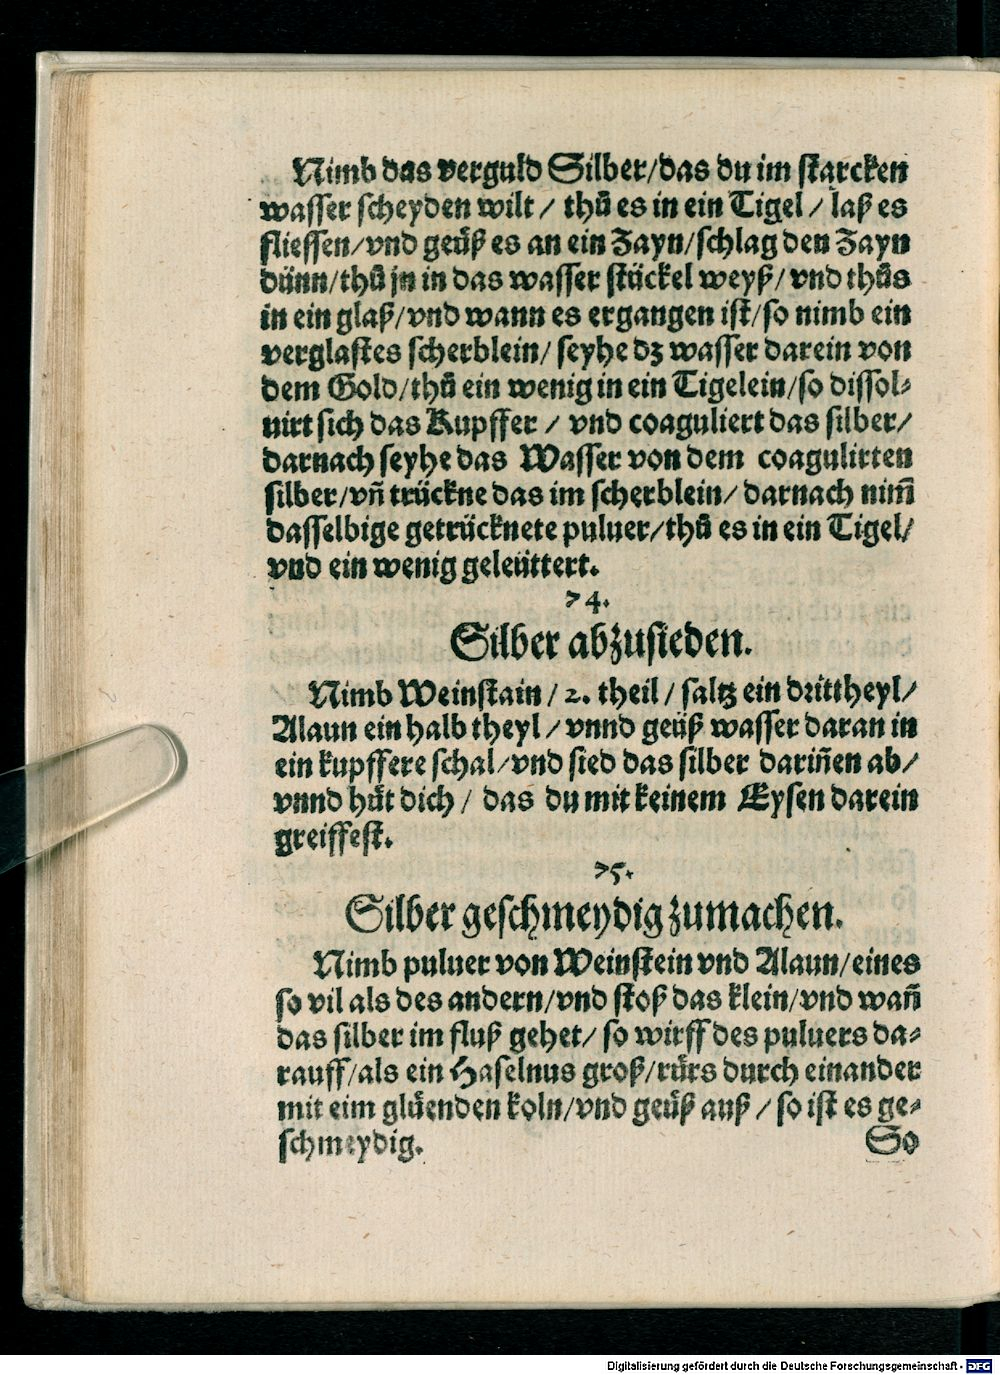 Nimb das verguld Silber/das du im starcken
wasser scheyden wilt / thů es in ein Tigel / laß es
fliessen/vnd geüß es an ein Zayn/schlag den Zayn
dünn/thů jn in das wasser stückel weyß/ vnd thůs
in ein glaß/vnd wann es ergangen ist/so nimb ein
verglastes scherblein/ seyhe dz wasser darein von
dem Gold/thů ein wenig in ein Tigelein/so dissol-
uirt sich das Kupffer / vnd coaguliert das silber/
darnach seyhe das Wasser von dem coagulirten
silber/vñ trückne das im scherblein/ darnach nim̃
dasselbige getrücknete puluer/thů es in ein Tigel/
vnd ein wenig geleüttert.
74.
Silber abzusieden.
Nimb Weinstain / 2. theil / saltz ein drittheyl/
Alaun ein halb theyl / vnnd geüß wasser daran in
ein kupffere schal/vnd sied das silber dariñen ab/
vnnd hüt dich / das du mit keinem Eysen darein
greiffest.
75.
Silber geschmeydig zumachen.
Nimb puluer von Weinstein vnd Alaun/eines
so vil als des andern/vnd stoß das klein/vnd wañ
das silber im fluß gehet/ so wirff des puluers da-
rauff/als ein Haselnus groß/rürs durch einander
mit eim glüenden koln/vnd geüß auß / so ist es ge-
schmeydig.
So
Digitalisierung gefördert durch die Deutsche Forschungsgemeinschaft - DFG